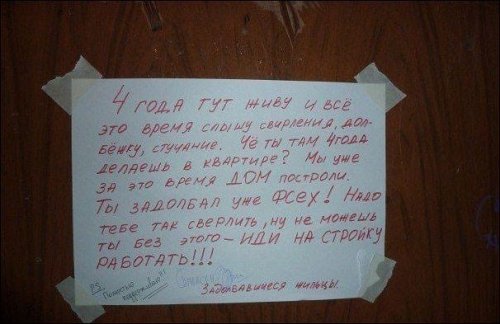 4 ГОДА ТУТ ЖИВУ И ВСЁ
ЭТО ВРЕМЯ СЛЫШУ СВИРЛЕНИЯ, ДОЛ-
БЁЖКУ, СТУЧАНИЕ. ЧЁ ТЫ ТАМ 4 ГОДА
ДЕЛАЕШЬ В КВАРТИРЕ? МЫ УЖЕ
ЗА ЭТО ВРЕМЯ ДОМ ПОСТРОЛИ.
ТЫ ЗАДОЛБАЛ УЖЕ ФСЕХ! НАДО
ТЕБЕ ТАК СВЕРЛИТЬ, НУ НЕ МОЖЕШЬ
ТЫ БЕЗ ЭТОГО – ИДИ НА СТРОЙКУ
РАБОТАТЬ!!!
P.S. Полностью поддерживаю!!!
ЗАДОЛБАВШИЕСЯ ЖИЛЬЦЫ.